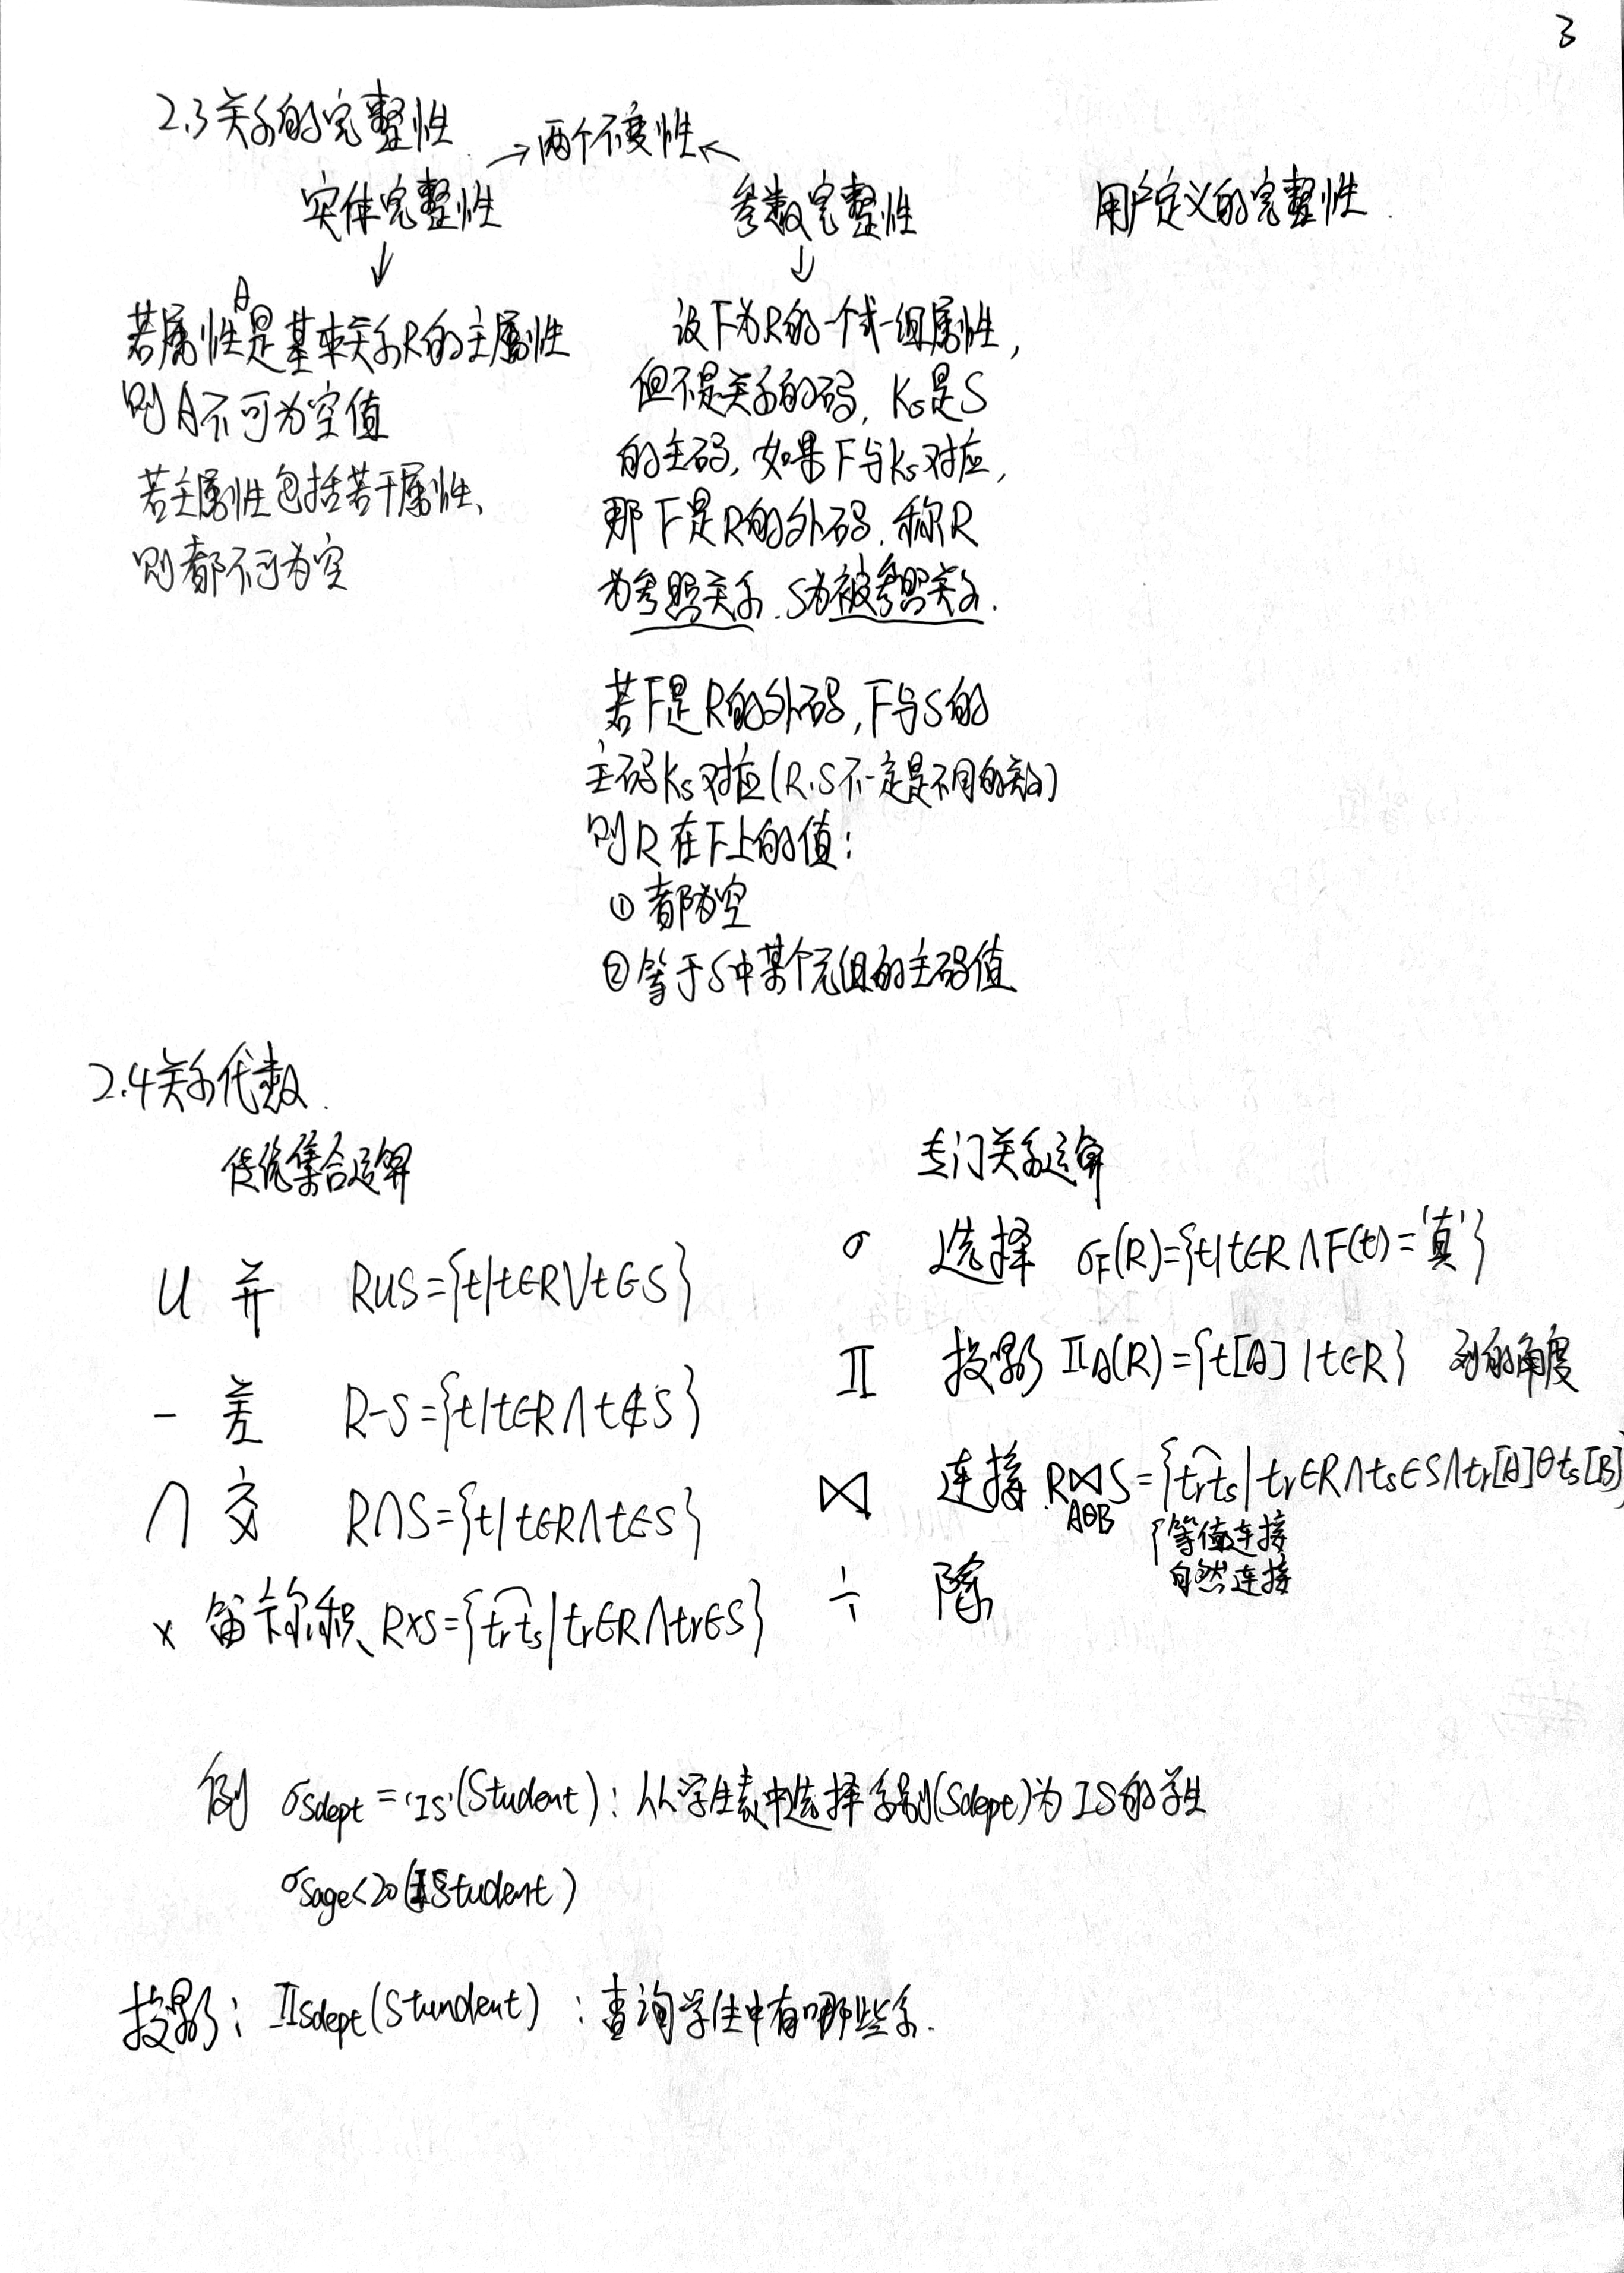 3
2.3关系的完整性
→两个不变性←
实体完整性 参数完整性 用户定义的完整性
↓ ↓
若属性A是基本关系R的主属性
则A不可为空值
若主属性包括若干属性、
则都不可为空
设F为R的一个或一组属性,
但不是关系的码, Ks是S
的主码, 如果F与Ks对应,
那F是R的外码. 称R
为参照关系. S为被参照关系.
若F是R的外码, F与S的
主码Ks对应(R.S不一定是不同的关系)
则R在F上的值:
① 都为空
② 等于S中某个元组的主码值
2.4关系代数.
传统集合运算
∪ 并 R∪S={t|t∈R∨t∈S}
- 差 R-S={t|t∈R∧t∉S}
∩ 交 R∩S={t|t∈R∧t∈S}
× 笛卡尔积、R×S={tr⌒ts|tr∈R∧tr∈S}
专门关系运算
σ 选择 σF(R)={t|t∈R∧F(t)='真'}
Π 投影 ΠA(R)={t[A]|t∈R} 列的角度
⋈ 连接 R⋈S={tr⌒ts|tr∈R∧ts∈S∧tr[A]θts[B]
AθB
{等值连接
自然连接
÷ 除
例 σSdept='IS'(Student): 从学生表中选择系别(Sdept)为IS的学生
σSage<20(Student)
投影: ΠSdept(Stundent) : 查询学生中有哪些系.